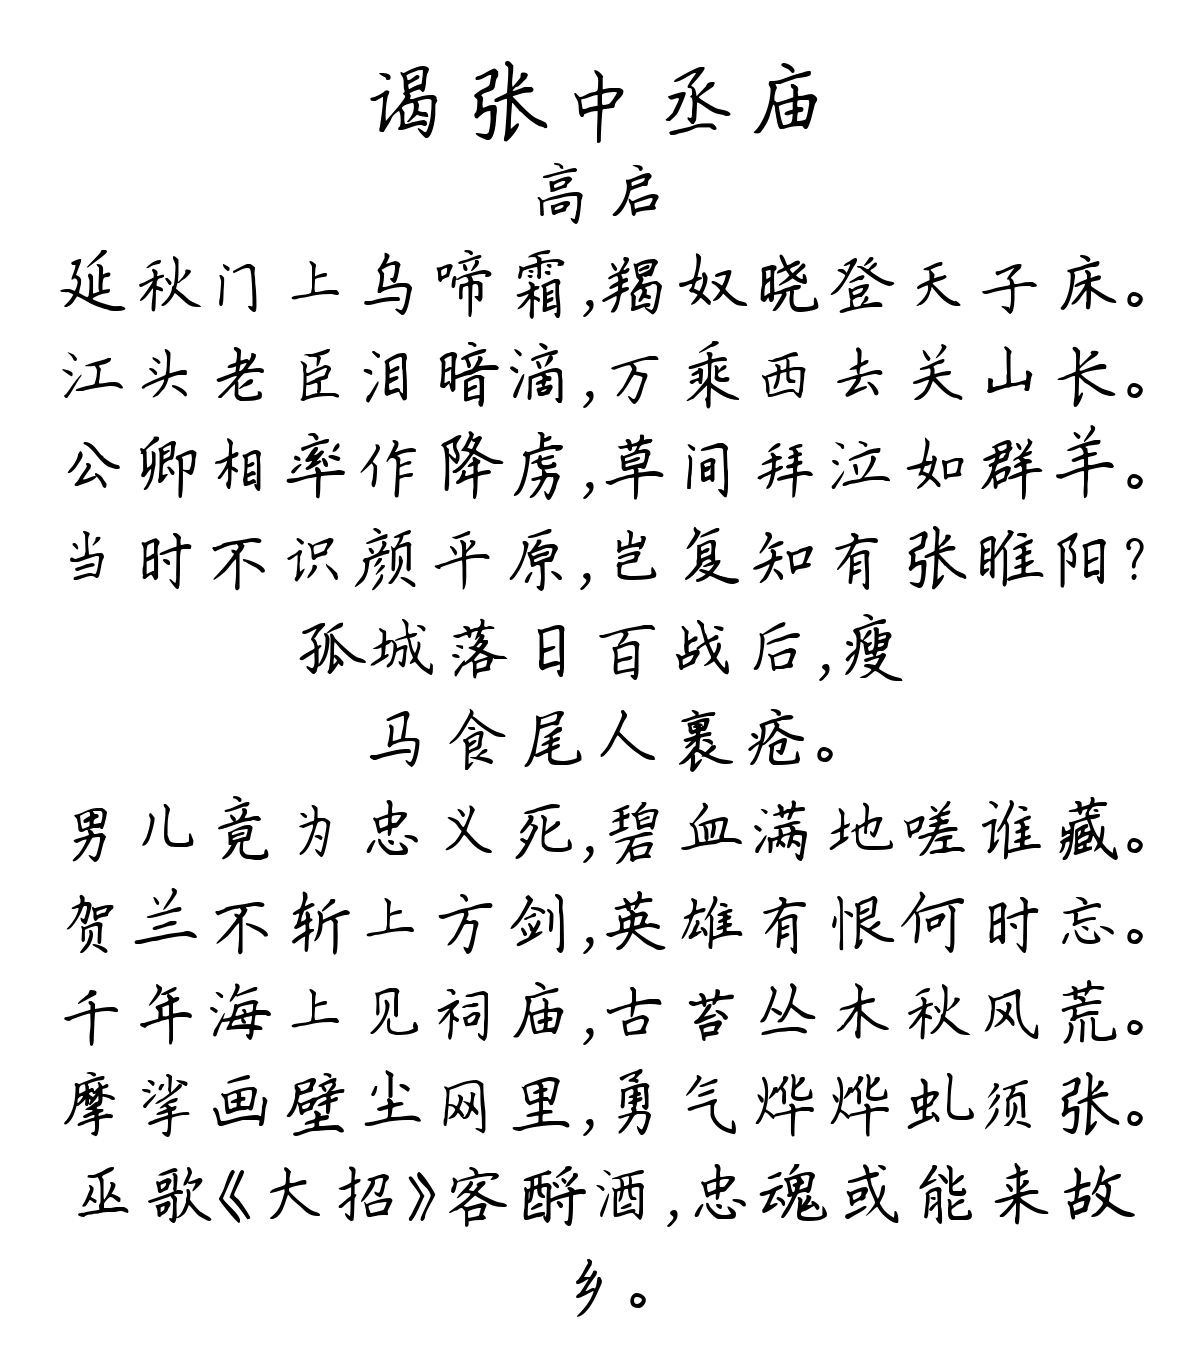 谒张中丞庙
高启
延秋门上乌啼霜,羯奴晓登天子床。
江头老臣泪暗滴,万乘西去关山长。
公卿相率作降虏,草间拜泣如群羊。
当时不识颜平原,岂复知有张睢阳?
孤城落日百战后,瘦
马食尾人裹疮。
男儿竟为忠义死,碧血满地嗟谁藏。
贺兰不斩上方剑,英雄有恨何时忘。
千年海上见祠庙,古苔丛木秋风荒。
摩挲画壁尘网里,勇气烨烨虬须张。
巫歌《大招》客酹酒,忠魂或能来故
乡。